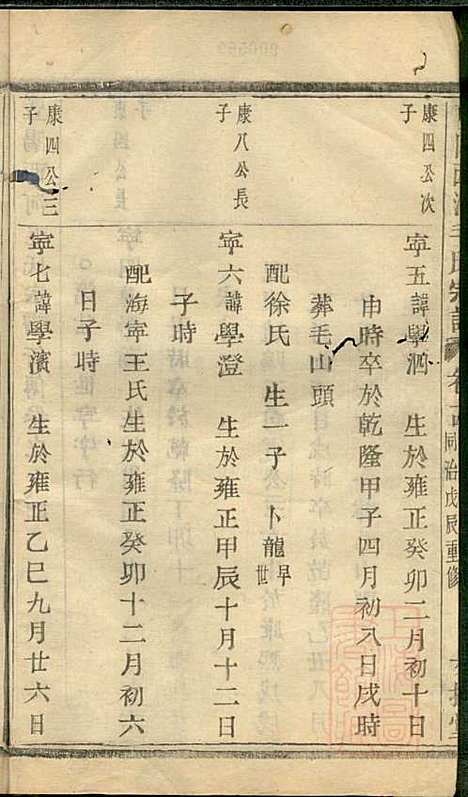 康四公次子
寧五諱學泗 生於雍正癸卯二月初十日
申時卒於乾隆甲子四月初八日戌時
葬毛山頭
配徐氏 生一子 卜龍早世
康八公長子
寧六諱學澄 生於雍正甲辰十月十二日
子時
配海寧王氏生於雍正癸卯十二月初六
日子時
康四公三子
寧七諱學濱 生於雍正乙巳九月廿六日
同治戊辰重修